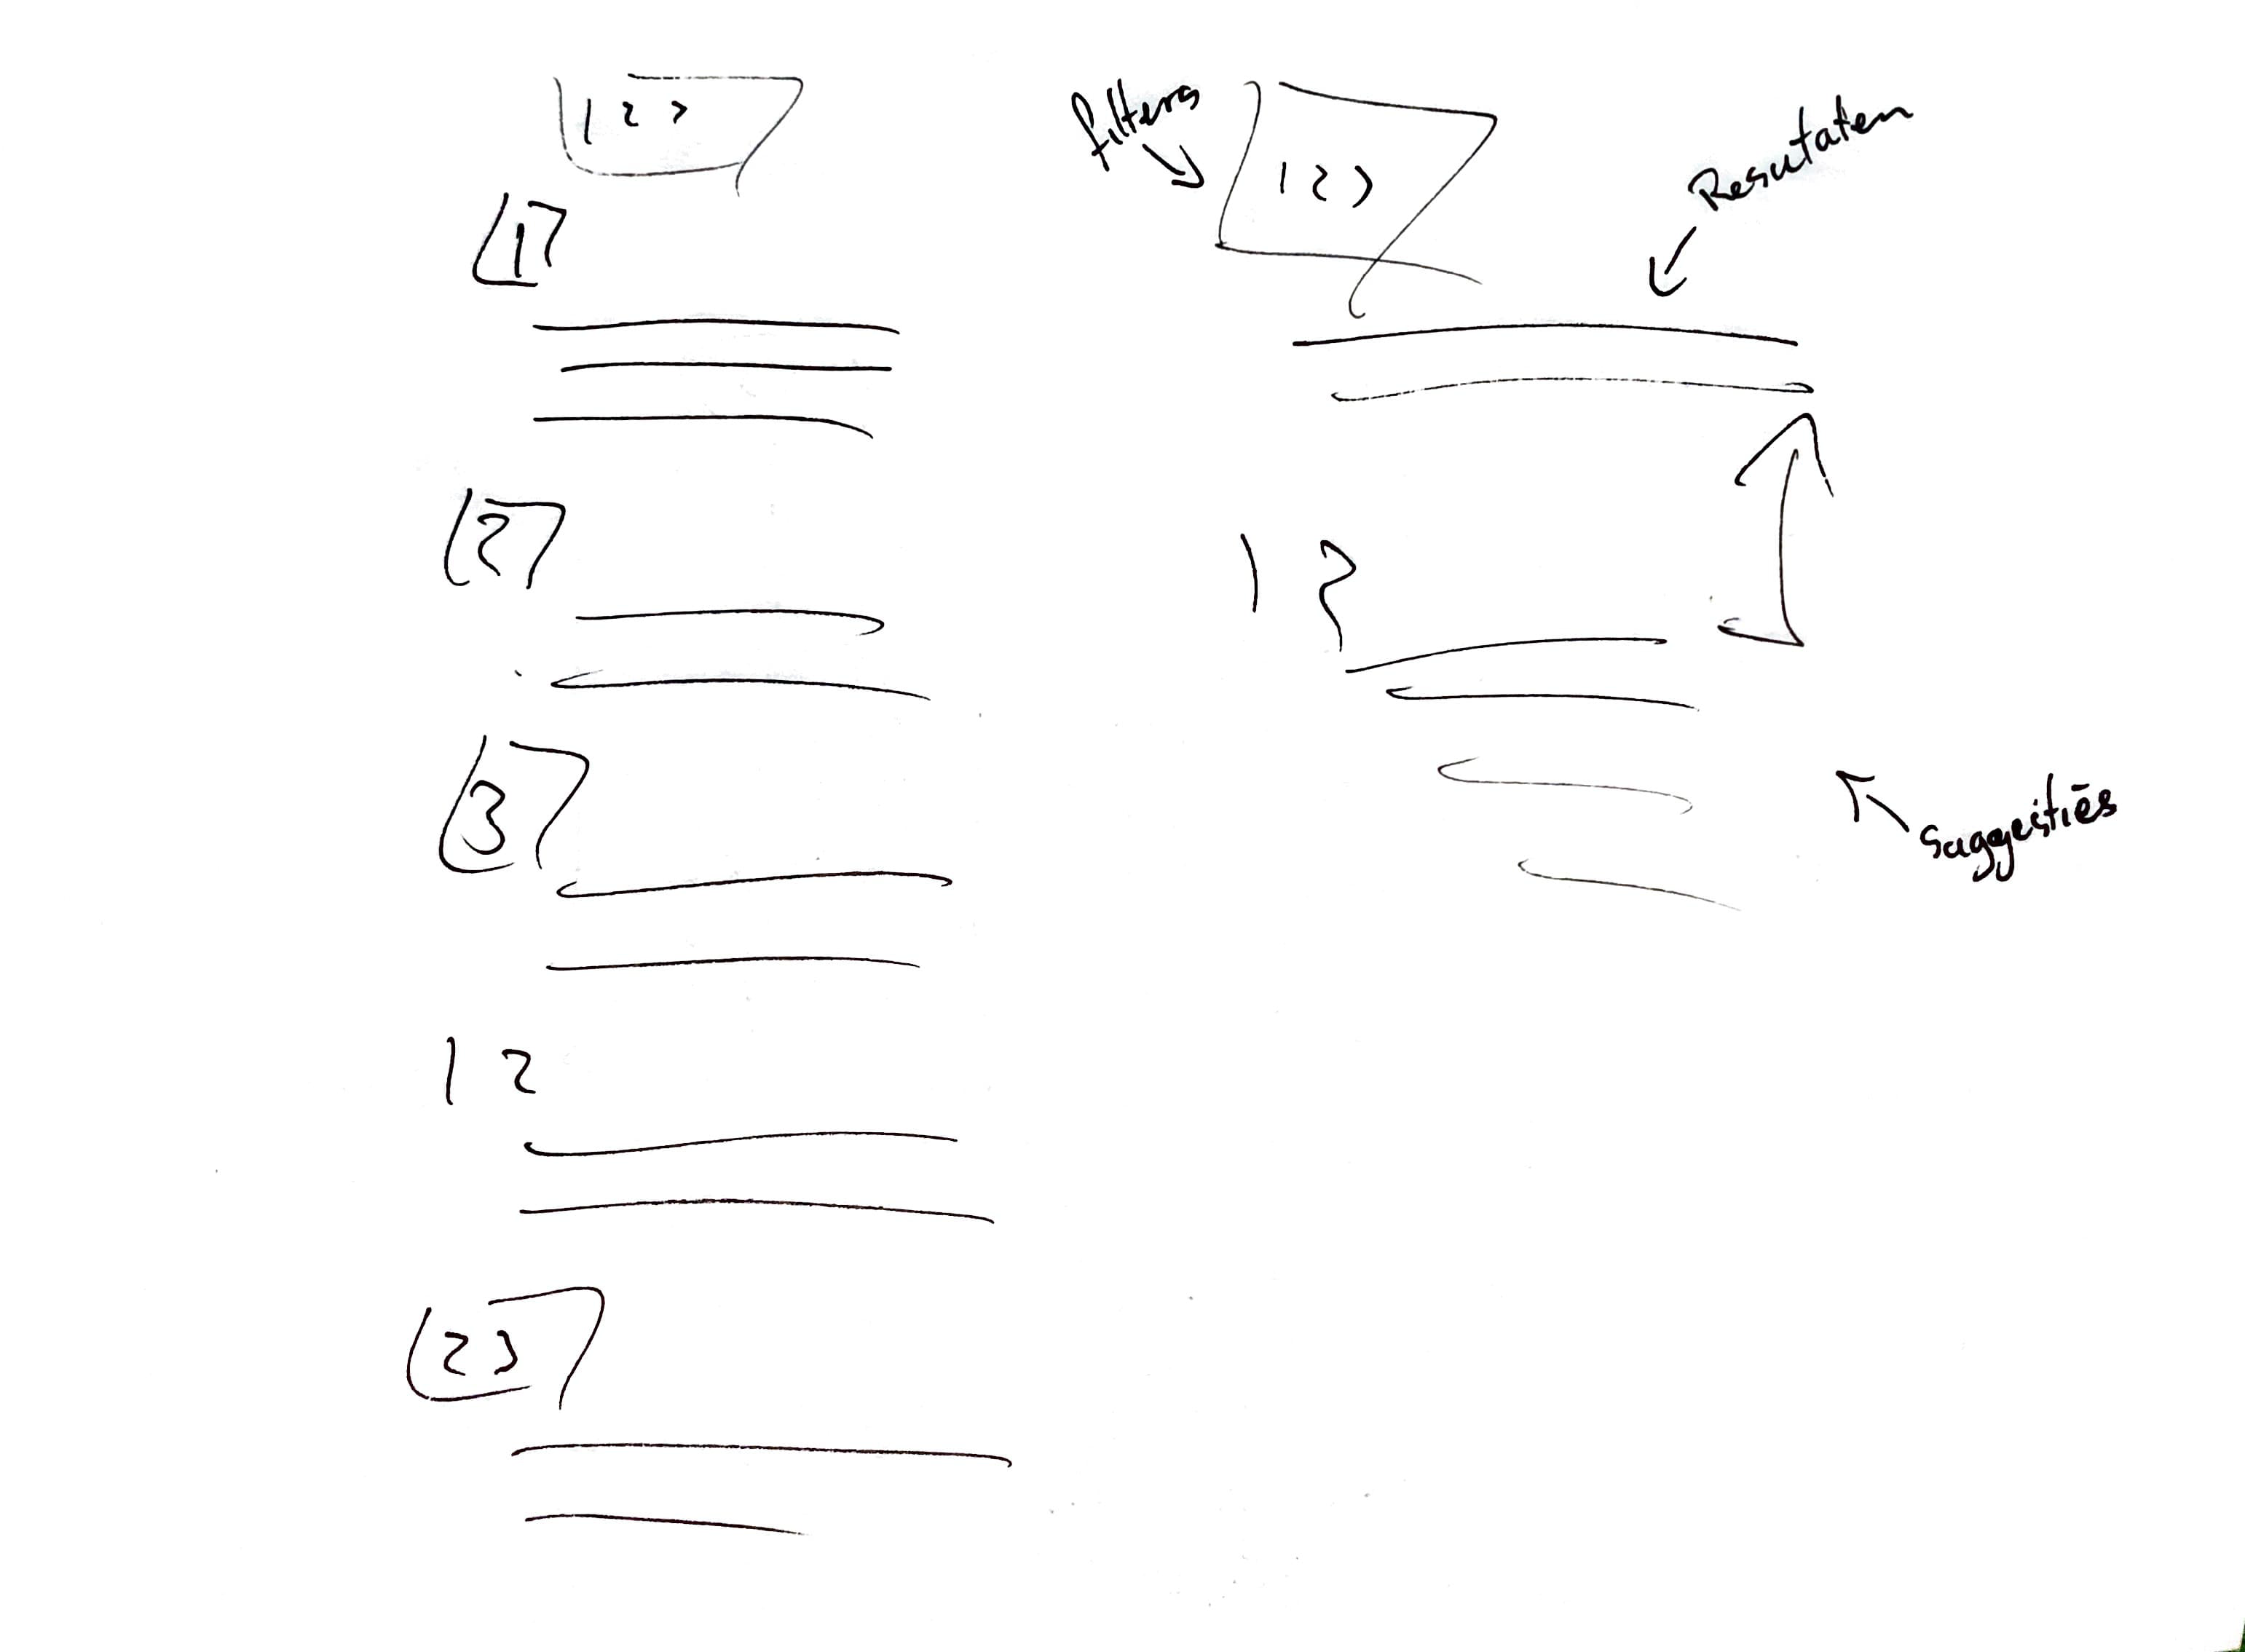 1 2 3
1
2
3
1 2
2 3
filters
1 2 3
Resutaten
1 2
suggestiēs